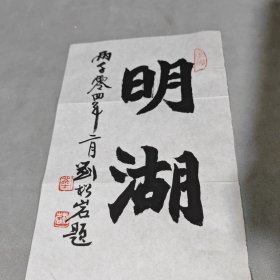 明湖
两千零四年二月
刘松岩题